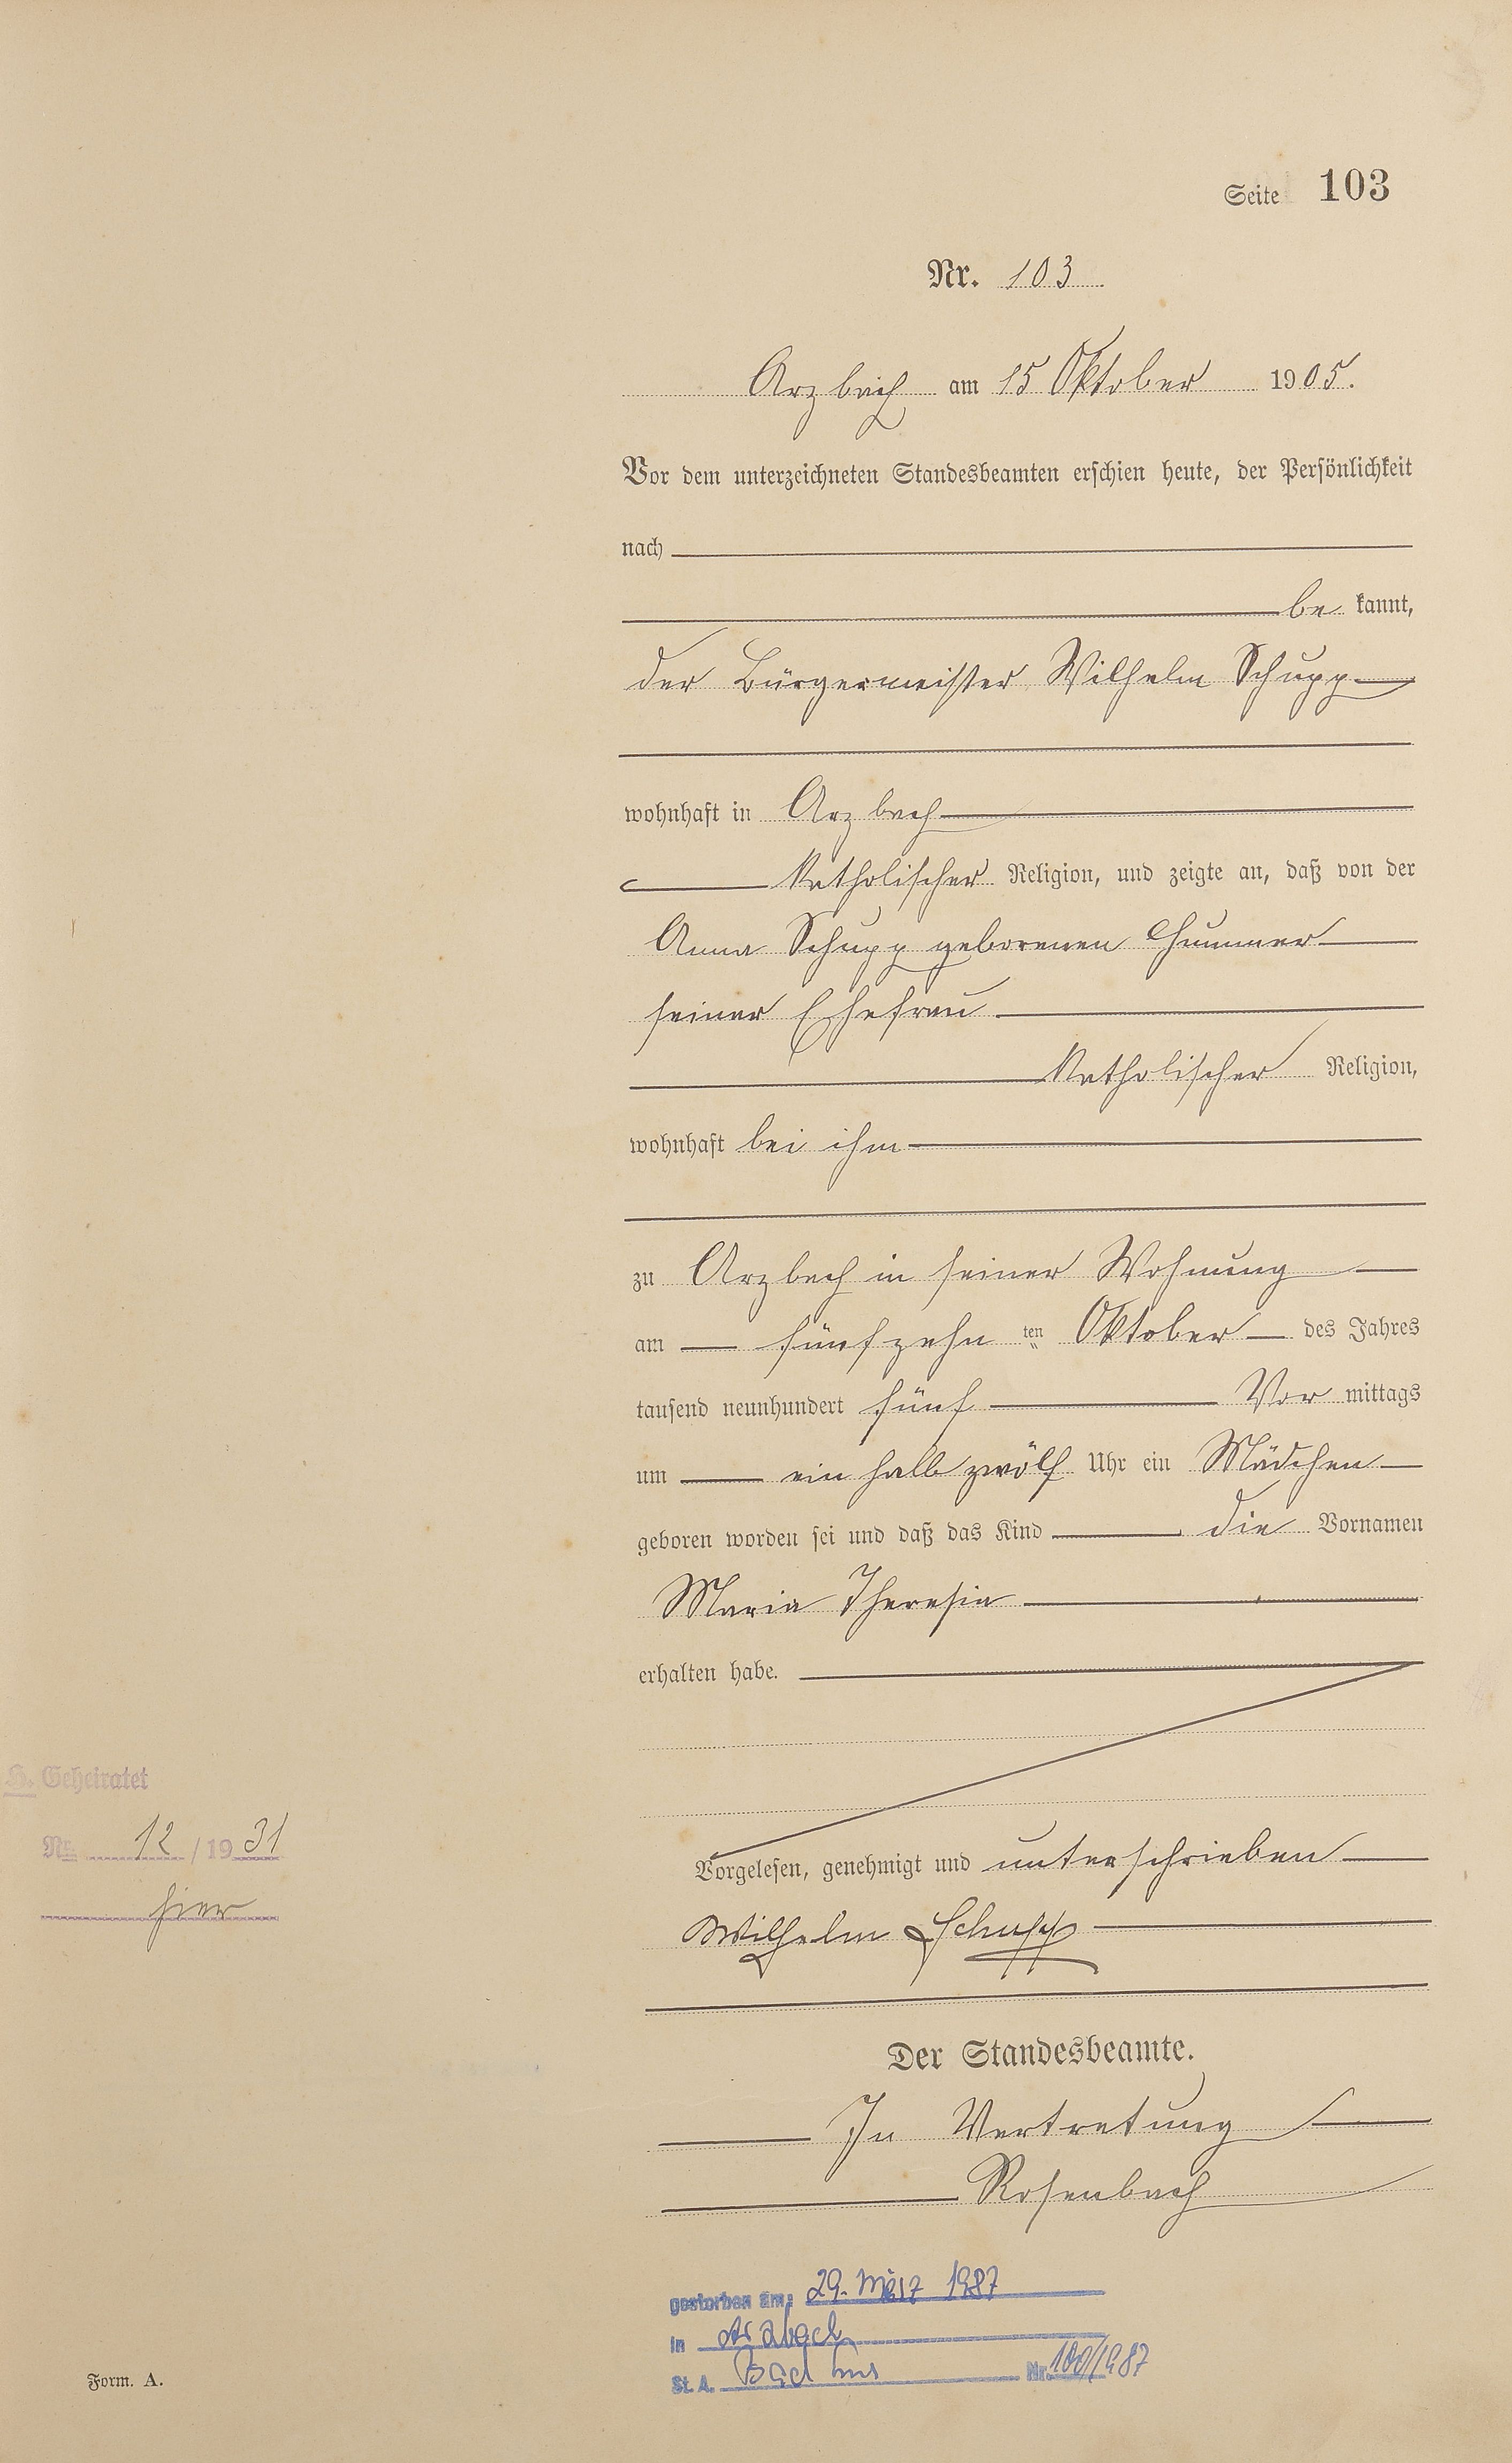 Seite 103
Nr. 103
Arzbach am 15 Oktober 1905.
Vor dem unterzeichneten Standesbeamten erschien heute, der Persönlichkeit
nach
be kannt,
der Bürgermeister Wilhelm Schupp
wohnhaft in Arzbach
Katholischer Religion, und zeigte an, daß von der
Anna Schupp geborenen
seiner Ehefrau
Katholischer Religion,
wohnhaft bei ihm
zu Arzbach in seiner Wohnung
am fünfzehn ten Oktober des Jahres
tausend neunhundert fünf Vor mittags
um ein halb zwölf Uhr ein Mädchen
geboren worden sei und daß das Kind die Vornamen
Maria Theresia
erhalten habe.
Vorgelesen, genehmigt und unterschrieben
Wilhelm Schupp
Der Standesbeamte.
In Vertretung
Rosenbach
H. Geheiratet
Nr. 12 / 1931
hier
gestorben am: 29. März 1987
in Arzbach
St. A. Bad Ems Nr. 100/1987
Form. A.